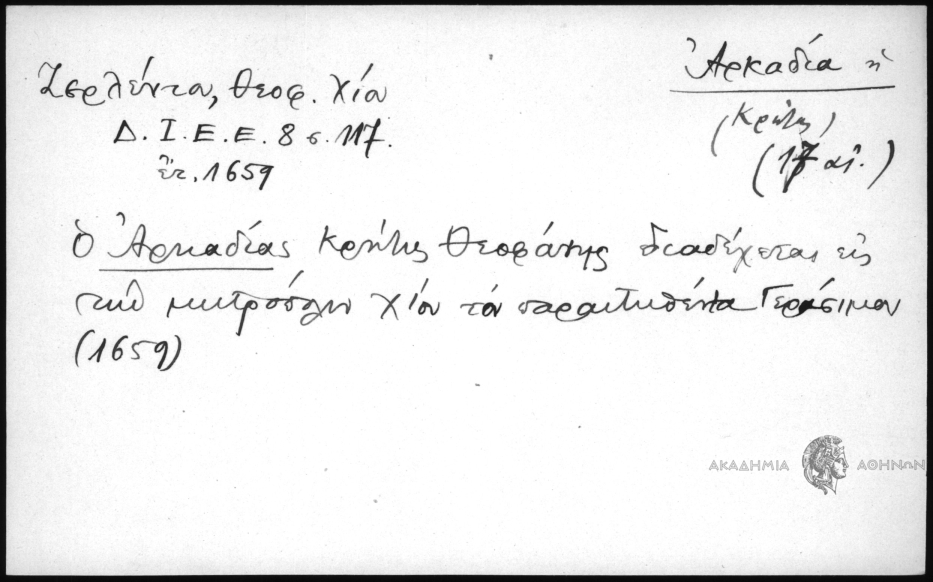 Ζερλέντα, Θεοφ. Χίου
Δ. Ι. Ε. Ε. 8 σ. 117.
ἔτ. 1659
Ἀρκαδία ἡ
(Κρήτης)
(17 αἰ.)
ὁ Ἀρκαδίας Κρήτης Θεοφάνης διαδέχεται εἰς
τὴν μητρόπολιν Χίου τὸν παραιτηθέντα Γεράσιμον
(1659)
ΑΚΑΔΗΜΙΑ ΑΘΗΝΩΝ